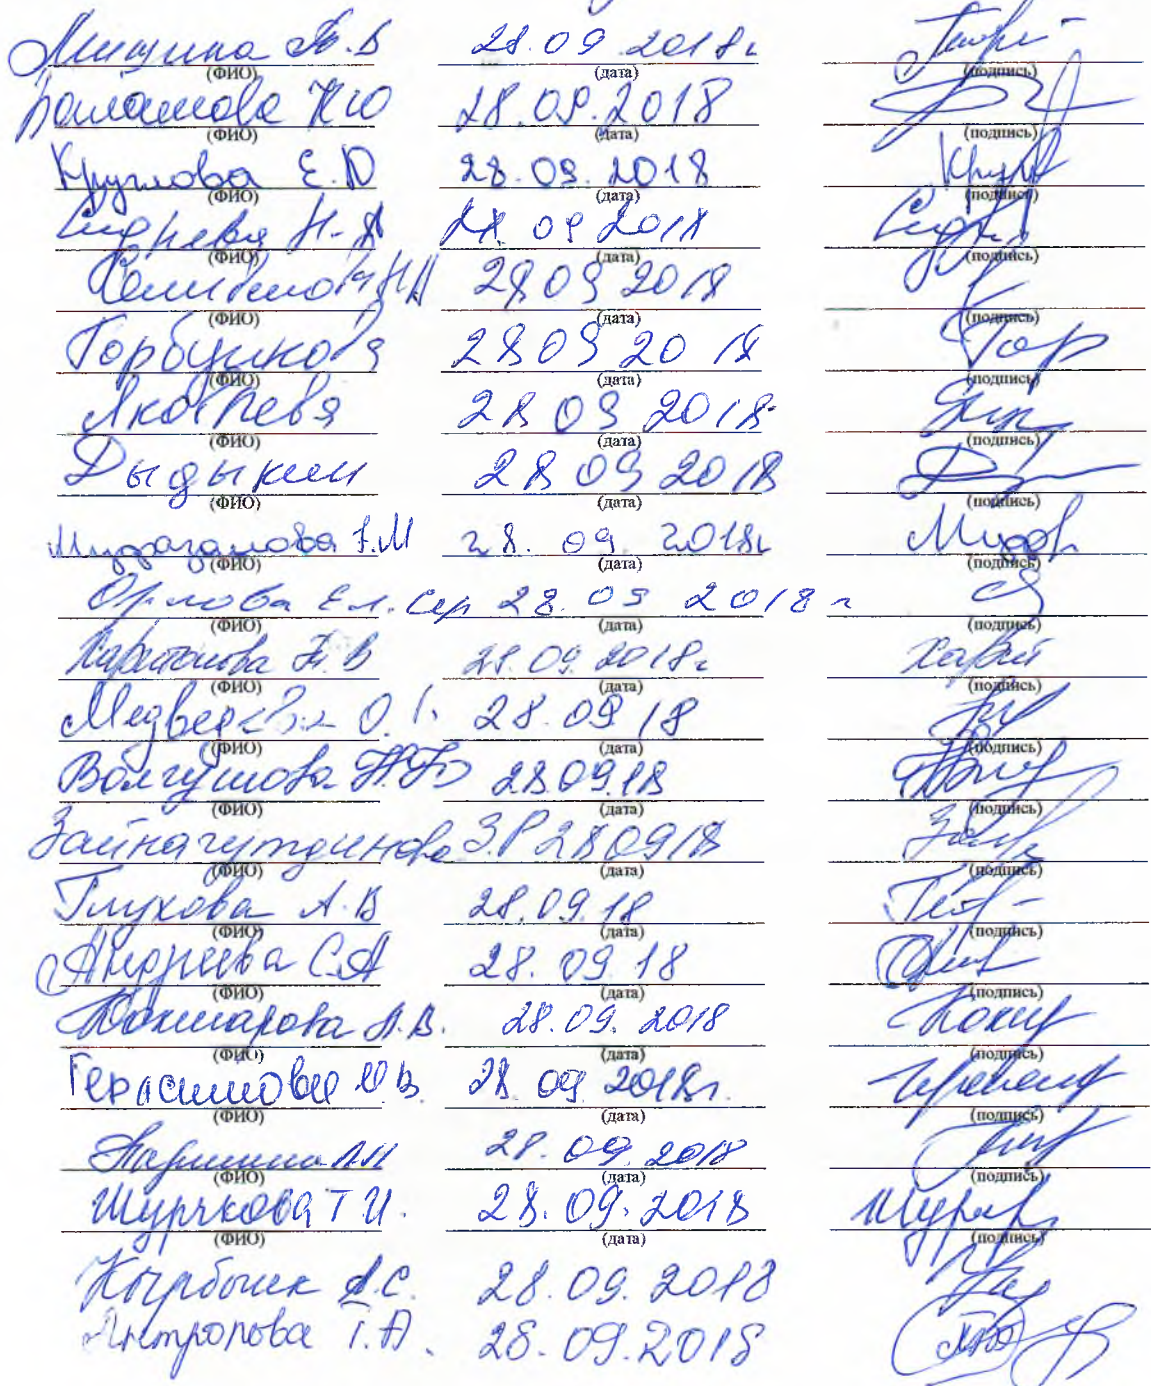 Мишина Т.В 28.09 2018г
(ФИО) (дата) (подпись)
Балашова Н Ю 28.09.2018
(ФИО) (дата) (подпись)
Круглова Е.Ю 28.09.2018 Кругл
(ФИО) (дата) (подпись)
Сиднева Н.А 28 09 2018
(ФИО) (дата) (подпись)
28 09 2018
(ФИО) (дата) (подпись)
Горбункова 28 09 20 18 Гор
(ФИО) (дата) (подпись)
Яковлева 28 09 2018
(ФИО) (дата) (подпись)
Дыдыкин 28 09 2018
(ФИО) (дата) (подпись)
28. 09. 2018г
(ФИО) (дата) (подпись)
Орлова Ел. Сер 28. 09 2018 г
(ФИО) (дата) (подпись)
Харитонова Н. В 28.09.2018г Харит
(ФИО) (дата) (подпись)
Медведева О. 28.09 18
(ФИО) (дата) (подпись)
Волгушова 28.09.18
(ФИО) (дата) (подпись)
Зайнагутдинова З.Р 28 09 18
(ФИО) (дата) (подпись)
Глухова А.В 28.09.18
(ФИО) (дата) (подпись)
Андреева С.А 28. 09 18
(ФИО) (дата) (подпись)
Кокшарова А.В. 28.09. 2018
(ФИО) (дата) (подпись)
Герасимова О.В. 28. 09 2018г.
(ФИО) (дата) (подпись)
28. 09. 2018
(ФИО) (дата) (подпись)
Шурчкова Т И. 28. 09. 2018
(ФИО) (дата) (подпись)
А.С. 28. 09. 2018
Антропова Т.А. 28. 09.2018